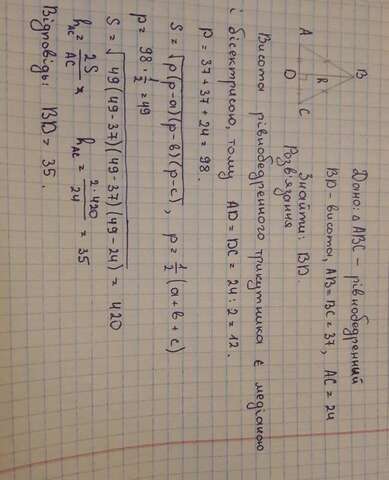 Дано: △ABC - рівнобедренний
BD - висота, AB = BC = 37, AC = 24
Знайти: BD.
Розв'язання
B
A
D
C
Висота рівнобедренного трикутника є медіаною
і бісектрисою, тому AD = DC = 24 : 2 = 12.
P = 37 + 37 + 24 = 98.
S = √p(p-a)(p-b)(p-c), p = 1/2 (a + b + c)
p = 98 · 1/2 = 49
S = √49(49-37)(49-37)(49-24) = 420
h_AC = 2S/AC, h_AC = 2·420/24 = 35
Відповідь: BD = 35.